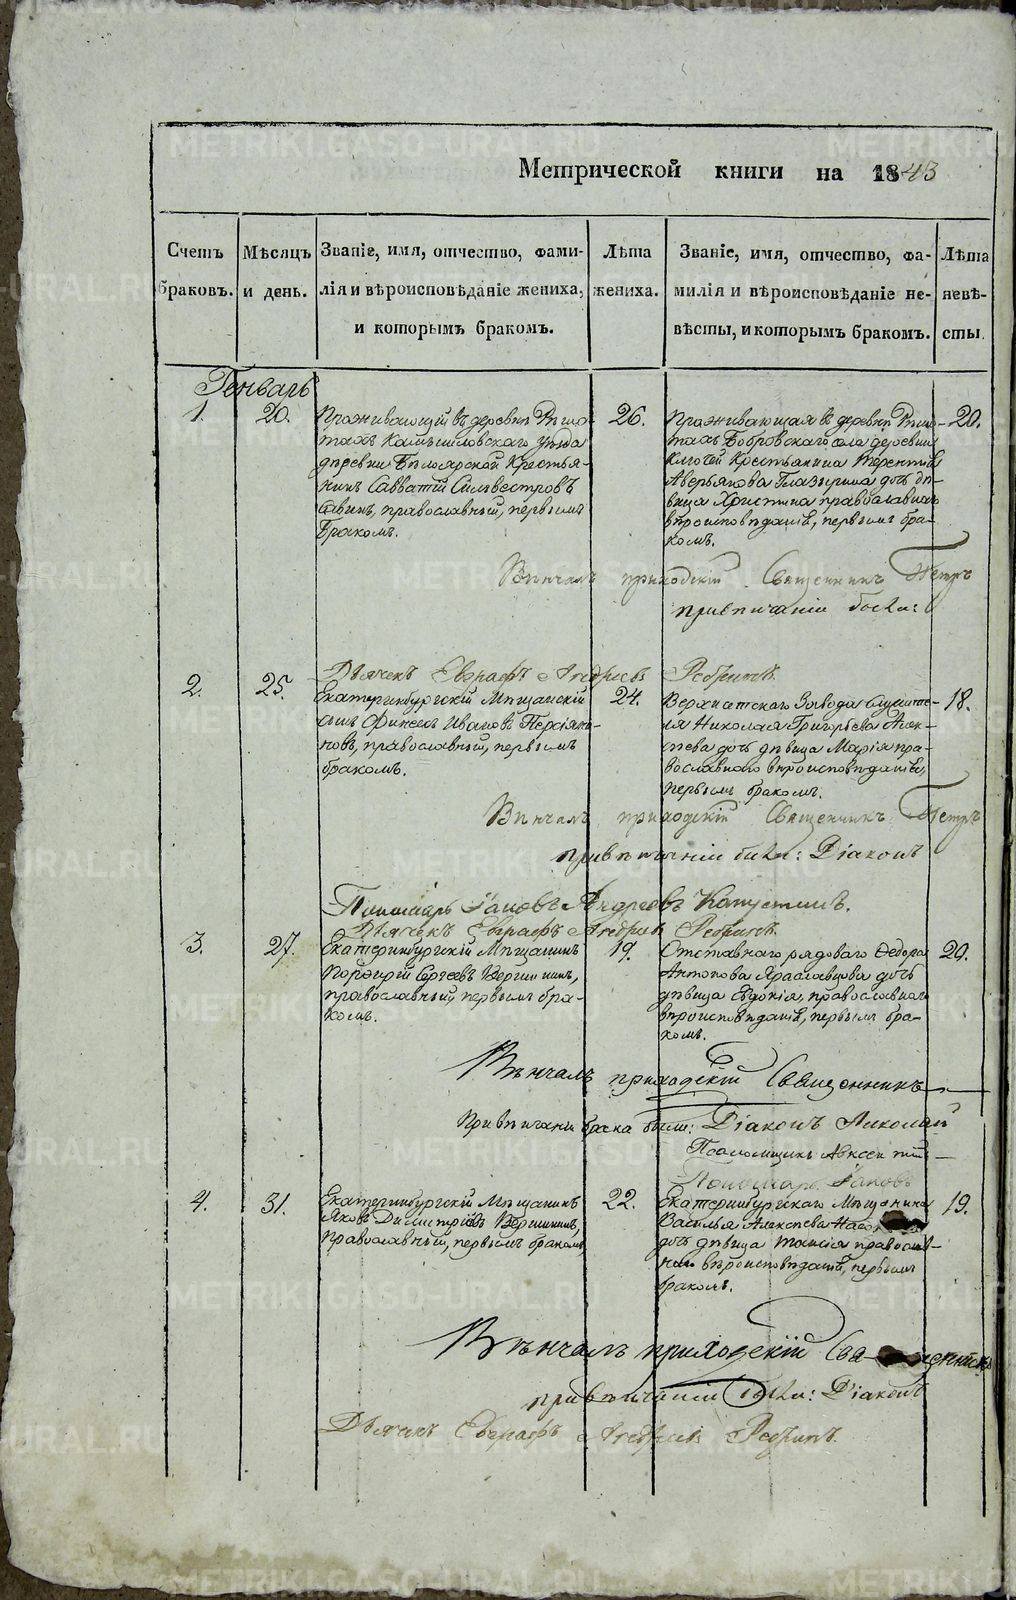 Метрической книги на 1843
Счетъ браковъ.
Мѣсяцъ и день.
Званіе, имя, отчество, фами-
лія и вѣроисповѣданіе жениха,
и которымъ бракомъ.
Лѣта жениха.
Званіе, имя, отчество, фа-
милія и вѣроисповѣданіе не-
вѣсты, и которымъ бракомъ.
Лѣта невѣ-
сты.
Генварь
1.
20.
Проживающій въ деревнѣ Рѣшо-
тахъ Камышловскаго уѣзда
деревни Бѣлоярской Крестья-
нинъ Савватій Сильвестровъ
Савинъ, православный, первымъ
бракомъ.
26.
Проживающая въ деревнѣ Рѣшо-
тахъ Бобровскаго села деревни
Ключей Крестьянина Терентія
Аверьянова Глазырина дочь дѣ-
вица Христина православнаго
вѣроисповѣданія, первымъ бра-
комъ.
20.
Вѣнчалъ приходскій Священникъ Петръ
при вѣнчаніи были:
Дьячекъ Евграфъ Андреевъ
2.
25.
Екатеринбургскій Мѣщанскій
сынъ Финеесъ Ивановъ Персіяни-
новъ, православный, первымъ
бракомъ.
24.
Верхисетскаго Завода Служите-
ля Николая Григорьева Алек-
ѣева дочь дѣвица Марія пра-
вославнаго вѣроисповѣданія,
первымъ бракомъ.
18.
Вѣнчалъ приходскій Священникъ Петръ
при вѣнчаніи были: Діаконъ
Пономарь Іаковъ Андреевъ Капустинъ.
Дьячекъ Евграфъ Андреевъ
3.
27.
Екатеринбургскій Мѣщанинъ
Порфирій Сергеевъ Вершининъ,
православный, первымъ бра-
комъ.
19.
Отставнаго рядоваго Федора
Антонова Яраславцова дочь
дѣвица Евдокія, православнаго
вѣроисповѣданія, первымъ бра-
комъ.
20.
Вѣнчалъ приходскій Священникъ
При вѣнчани брака были: Діаконъ Николай
Псаломщикъ
Пономарь Іаковъ
4.
31.
Екатеринбургскій Мѣщанинъ
Яковъ Димитріевъ Вершининъ,
православный, первымъ бракомъ,
22.
Екатеринбургскаго Мѣщанина
Василья Алексѣева
дочь дѣвица Таисія православ-
наго вѣроисповѣданія, первымъ
бракомъ.
19.
Вѣнчалъ приходскій Священникъ
при вѣнчаніи были: Діаконъ
Дьячекъ Евграфъ Андреевъ
METRIKI.GASO-URAL.RU